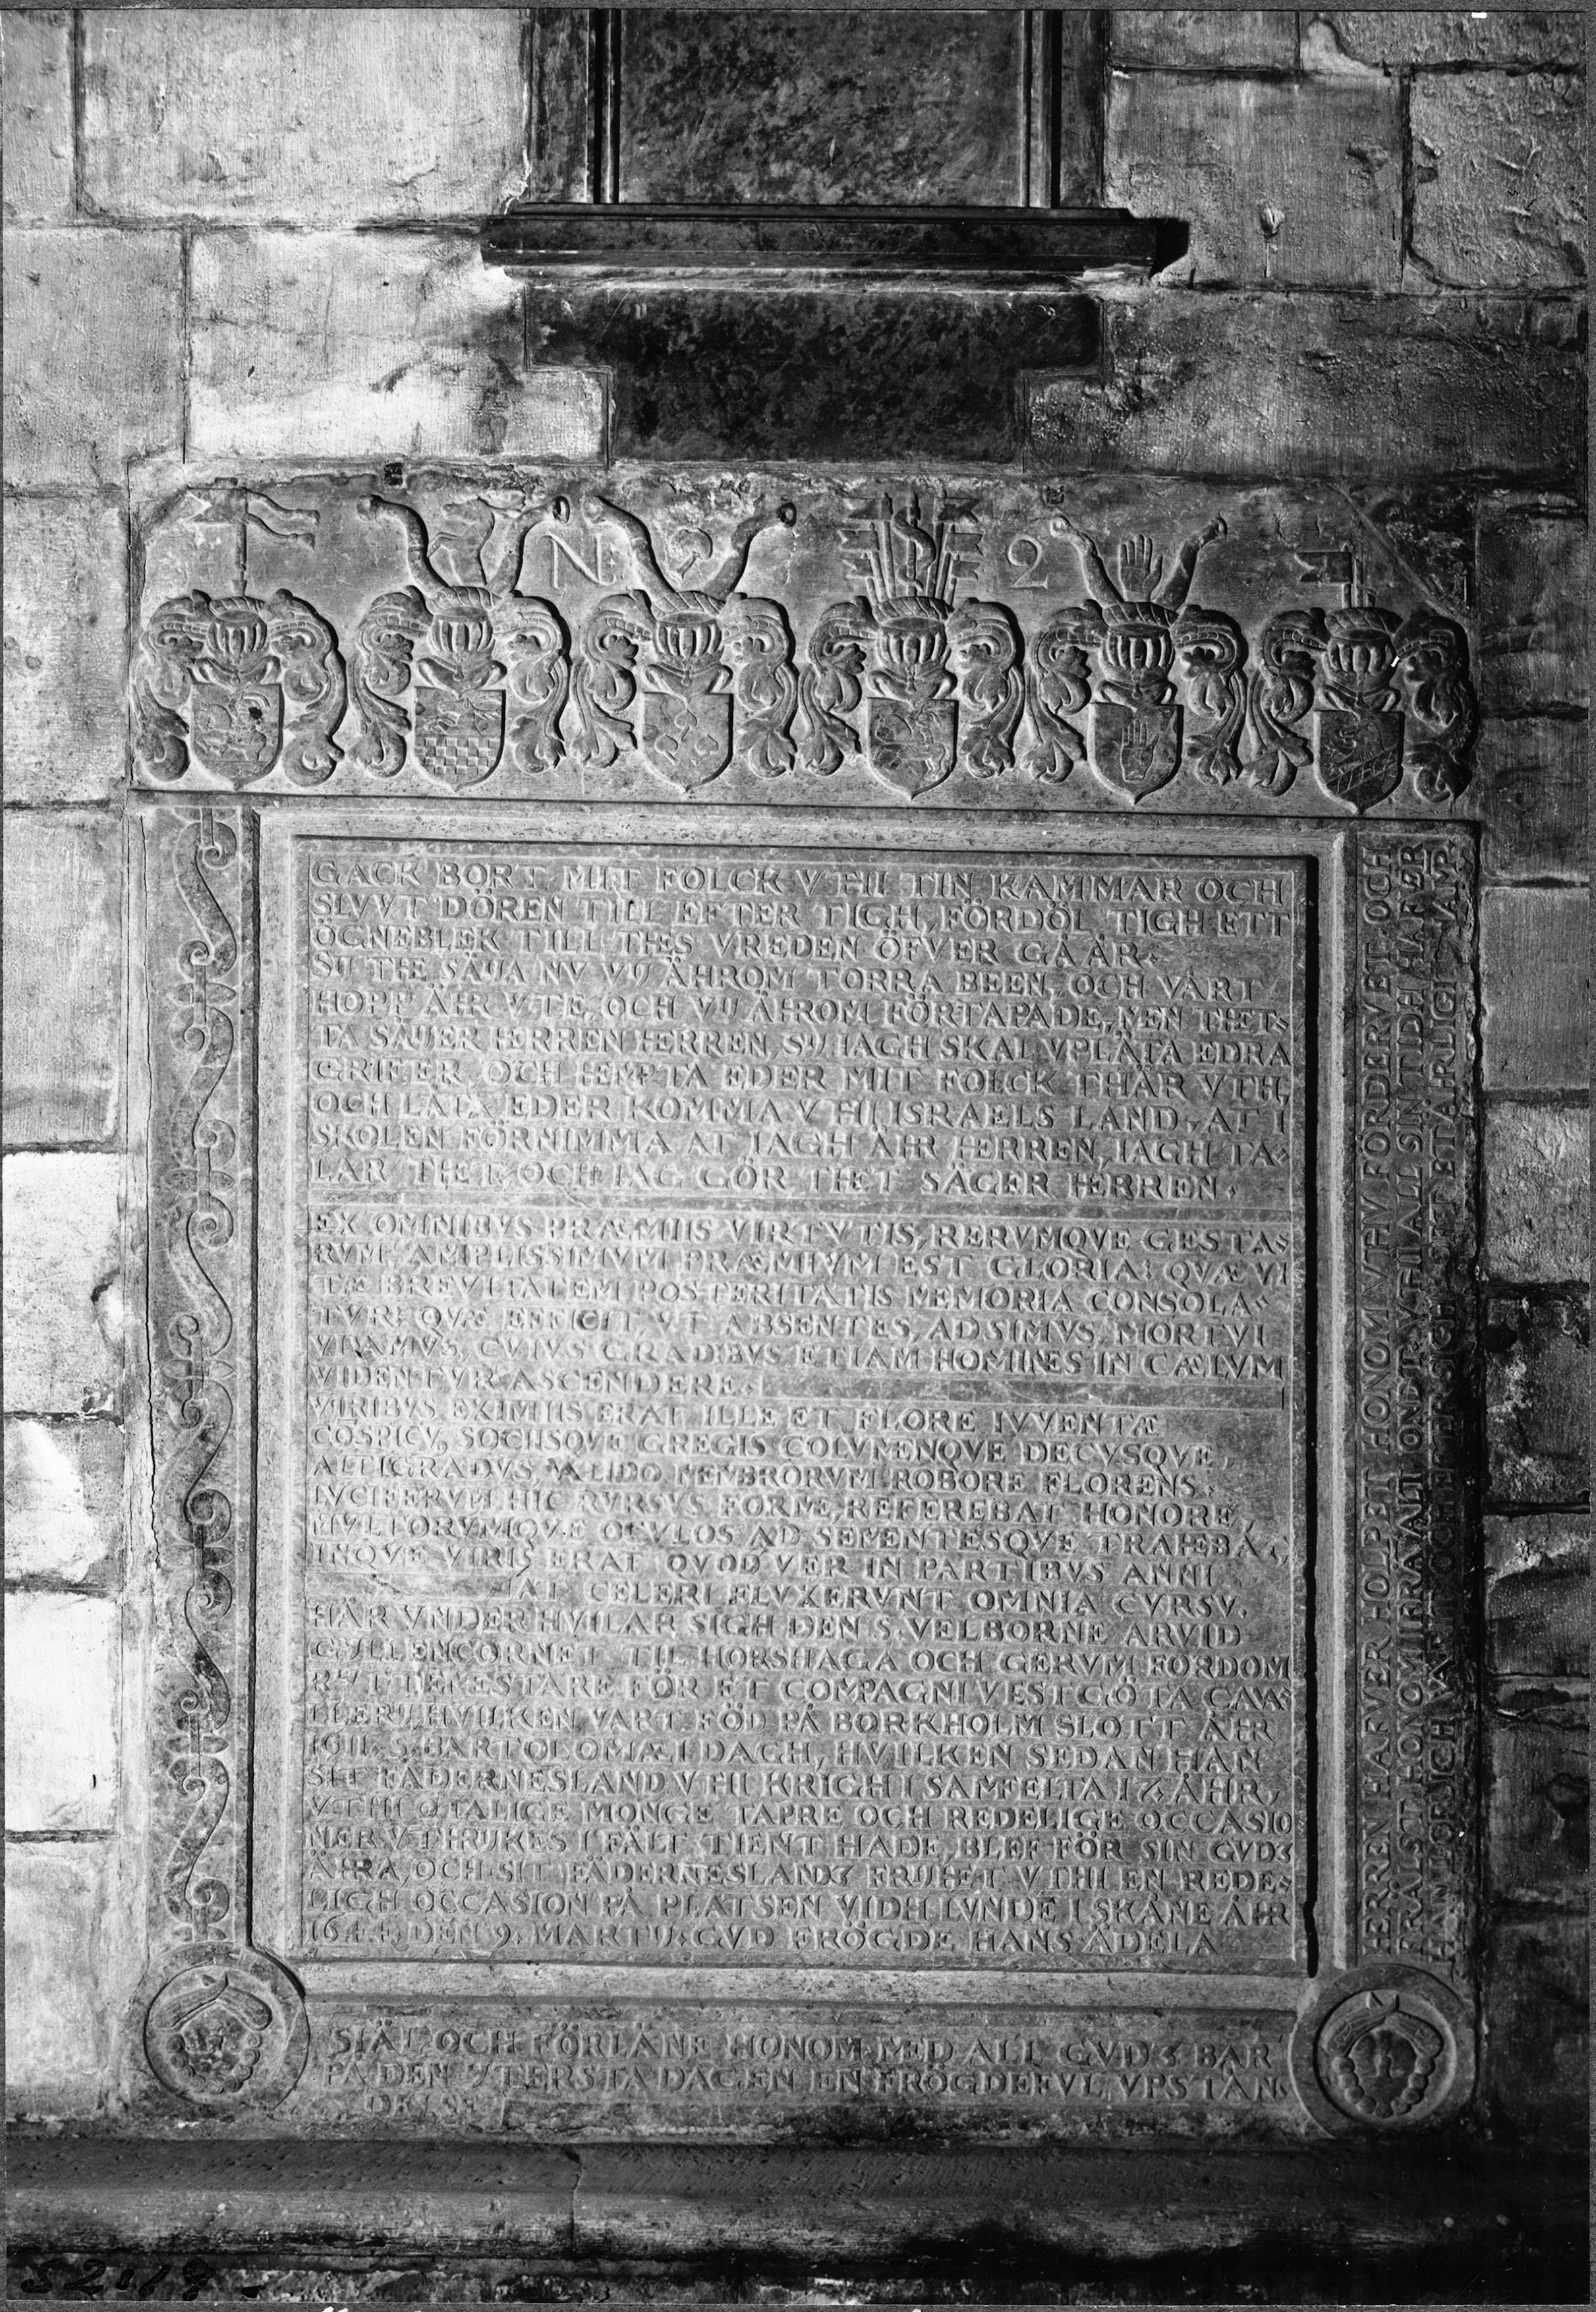 N: 2
GACK BORT MIT FOLCK VTHI TIN KAMMAR OCH
SLVVT DÖREN TILL EFTER TIGH, FÖRDÖL TIGH ETT
ÖGNEBLEK TILL THES VREDEN ÖFVER GÅÅR.
SIJ THE SÄIJA NV VIJ ÄHROM TORRA BEEN, OCH VÅRT
HOPP ÄHR VTE, OCH VIJ ÄHROM FÖRTAPADE, MEN THET-
TA SÄIJER HERREN HERREN, SIJ IAGH SKAL VPLÅTA EDRA
GRIFER, OCH HEMPTA EDER MIT FOLCK THÄR VTH,
OCH LATA EDER KOMMA VTHI ISRAELS LAND, AT I
SKOLEN FÖRNIMMA AT IAGH ÄHR HERREN, IAGH TA-
LAR THET, OCH IAG GÖR THET SÄGER HERREN.
EX OMNIBVS PRÆMIIS VIRTVTIS, RERVMQVE GESTA-
RVM, AMPLISSIMVM PRÆMIVM EST GLORIA: QVÆ VI
TÆ BREVITATEM POSTERITATIS MEMORIA CONSOLA-
TVR: QVÆ EFFICIT, VT ABSENTES, ADSIMVS, MORTVI
VIVAMVS, CVIVS GRADIBVS ETIAM HOMINES IN CÆLVM
VIDENTVR ASCENDERE.
VIRIBVS EXIMIIS ERAT ILLE ET FLORE IVVENTÆ
COSPICV, SOCIISQVE GREGIS COLVMENQVE DECVSQVE,
ALTIGRADVS, VALIDO MEMBRORVM ROBORE FLORENS.
LVCIFERVM HIC RVRSVS FORMÆ REFEREBAT HONORE,
MVLTORVMQVE OCVLOS AD SE MENTESQVE TRAHEBAT,
INQVE VIRIS ERAT QVOD VER IN PARTIBVS ANNI
AT CELERI FLVXERVNT OMNIA CVRSV.
HÄR VNDER HVILAR SIGH DEN S. VELBORNE ARVID
GYLLENCORNET TIL HORSHAGA OCH GERVM FORDOM
RYTTEMESTARE FÖR ET COMPAGNI VESTGÖTA CAVA-
LLERIJ, HVILKEN VART FÖD PÅ BORKHOLM SLOTT ÅHR
1611 S. BARTOLOMÆI DAGH, HVILKEN SEDAN HAN
SIT FÄDERNESLAND VTHI KRIGH I SAMFELTA 17 ÅHR,
VTHI OTALIGE MONGE TAPRE OCH REDELIGE OCCASIO
NER VTHRIJKES I FÄLT TIENT HADE, BLEF FÖR SIN GVDZ
ÄHRA, OCH SIT FÄDERNESLANDZ FRIJHET VTHI EN REDE-
LIGH OCCASION PÅ PLATSEN VIDH LVNDE I SKÅNE ÅHR
1644, DEN 9. MARTIJ. GVD FRÖGDE HANS ÄDELA
SIÄL OCH FÖRLÄNE HONOM MED ALL GVDZ BAR
PÅ DEN YTERSTA DAGEN EN FRÖGDEFVL VPSTÅN-
DELSE
HERREN HAFVER HOLPET HONOM VTHV FÖRDERVET OCH
FRÄLST HONOM IFRÅ ALT ONDT, VTHI ALL SIN TIDH HAFER
HAN LOFLICH VART OCH EFTER SIGH ETT ÄHRLIGT NAMP.